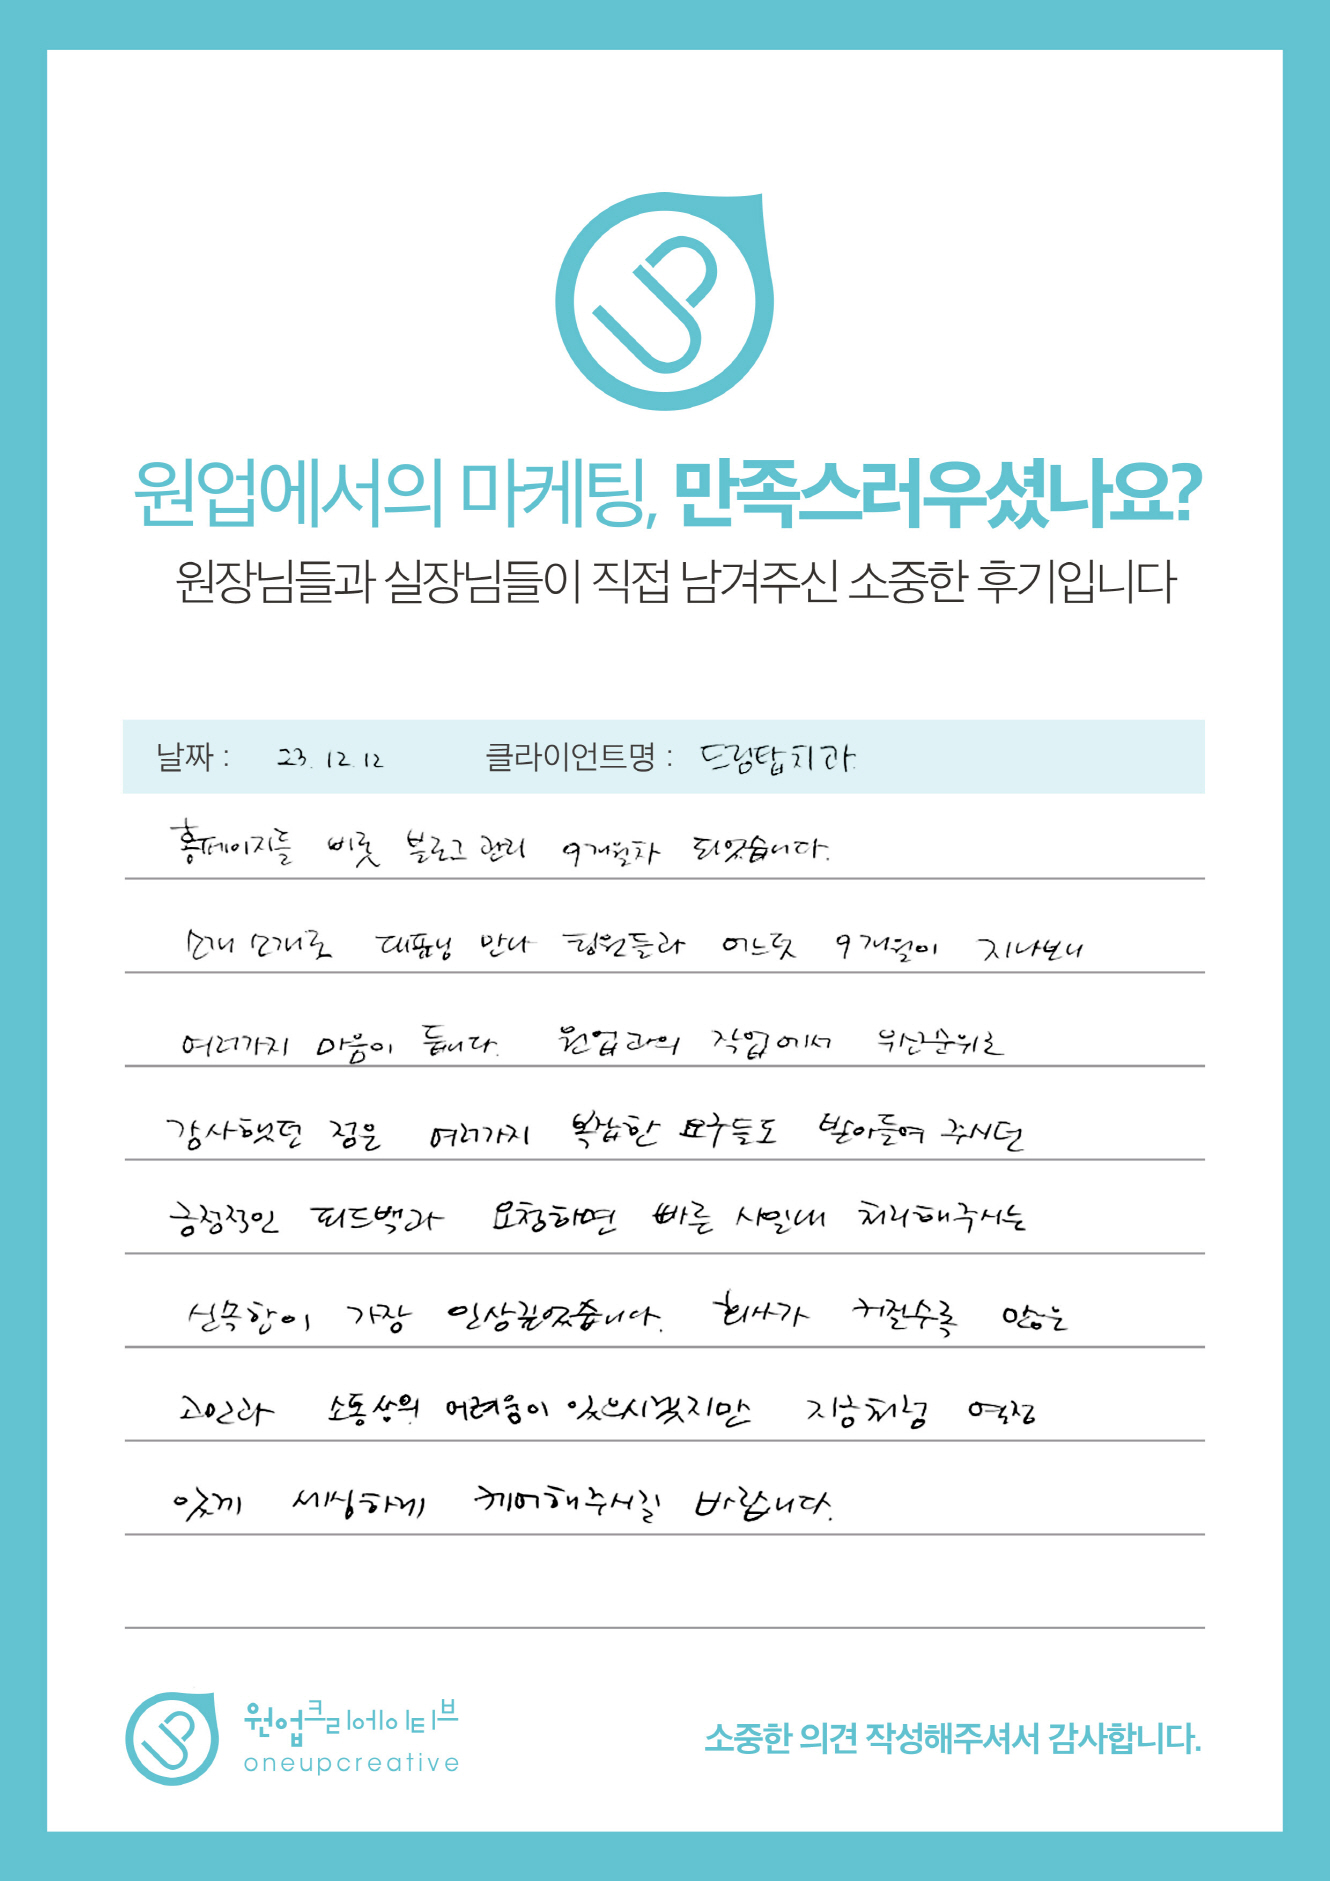 UP
원업에서의 마케팅, 만족스러우셨나요?
원장님들과 실장님들이 직접 남겨주신 소중한 후기입니다
날짜 : 23. 12. 12 클라이언트명 : 드림탑치과
홈페이지를 비롯 블로그 관리 9개월차 되었습니다.
소개 소개로 대표님 만나 팀원들과 어느덧 9개월이 지나보니
여러가지 마음이 듭니다. 원업과의 작업에서 우선순위로
감사했던 점은 여러가지 복잡한 요구들도 받아들여 주시던
긍정적인 피드백과 요청하면 빠른 시일내 처리해주시는
신속함이 가장 인상깊었습니다. 회사가 커질수록 많은
고민과 소통상의 어려움이 있으시겠지만 지금처럼 열정
있게 세심하게 케어해주시길 바랍니다.
UP 원업크리에이티브
oneupcreative
소중한 의견 작성해주셔서 감사합니다.